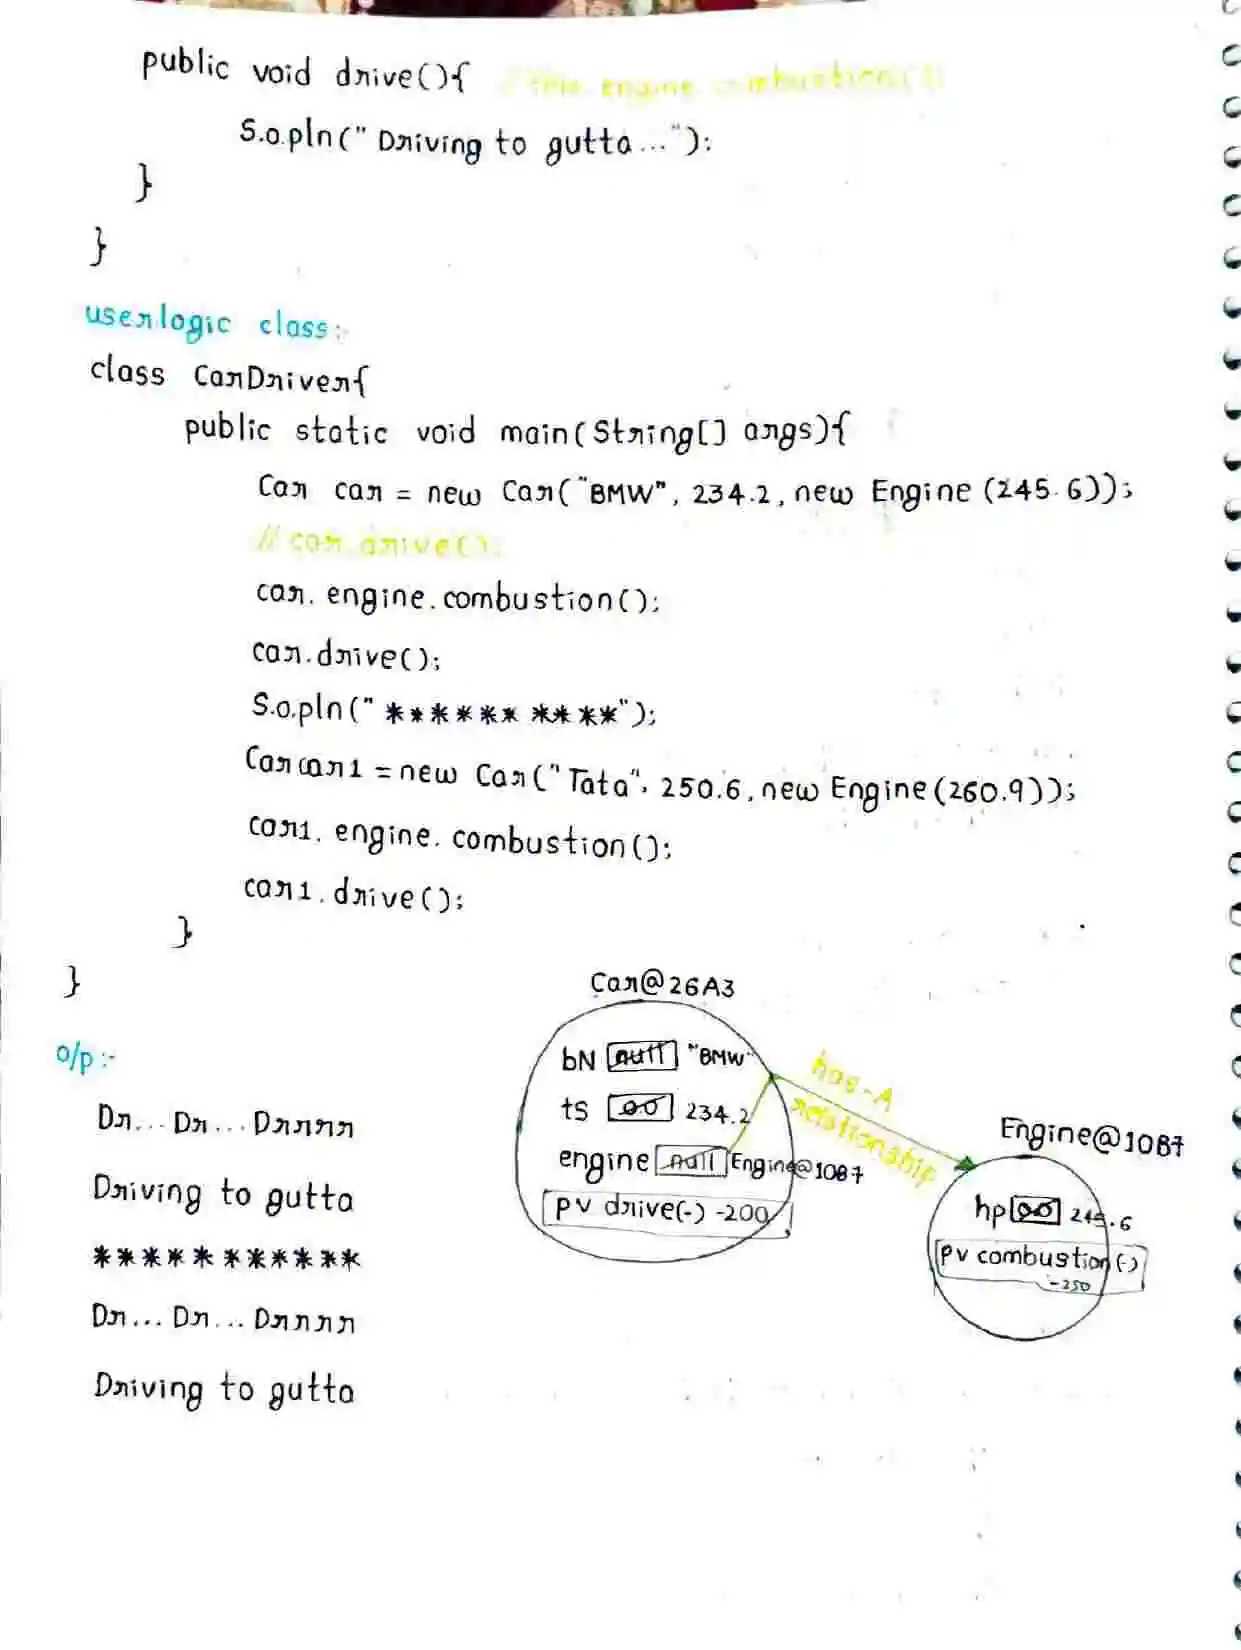 public void drive(){ //this.engine.combustion();
S.o.pln(" Driving to gutta...");
}
}
userlogic class:-
class CarDriver{
public static void main(String[] args){
Car car = new Car("BMW", 234.2, new Engine (245.6));
// car.drive();
car.engine.combustion();
car.drive();
S.o.pln(" **********");
Car car1 = new Car("Tata", 250.6, new Engine(260.9));
car1.engine.combustion();
car1.drive();
}
}
o/p:-
Dr... Dr... Drrrr
Driving to gutta
***********
Dr... Dr... Drrrr
Driving to gutta
Car@26A3
bN null "BMW"
ts 0.0 234.2
engine null Engine@1087
pv drive(-) -200
has-A
relationship
Engine@1087
hp 0.0 245.6
pv combustion(-)
-250